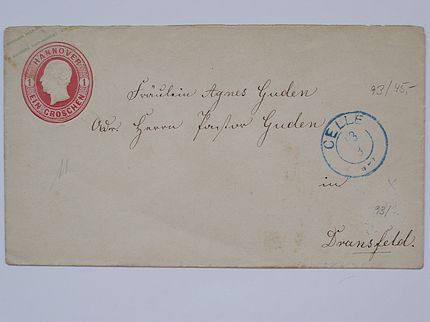 HANNOVER
1 1
EIN GROSCHEN
Fräulein Agnes Guden
Adr. Herrn Pastor Guden
in
Dransfeld.
CELLE
93/45,-
93/